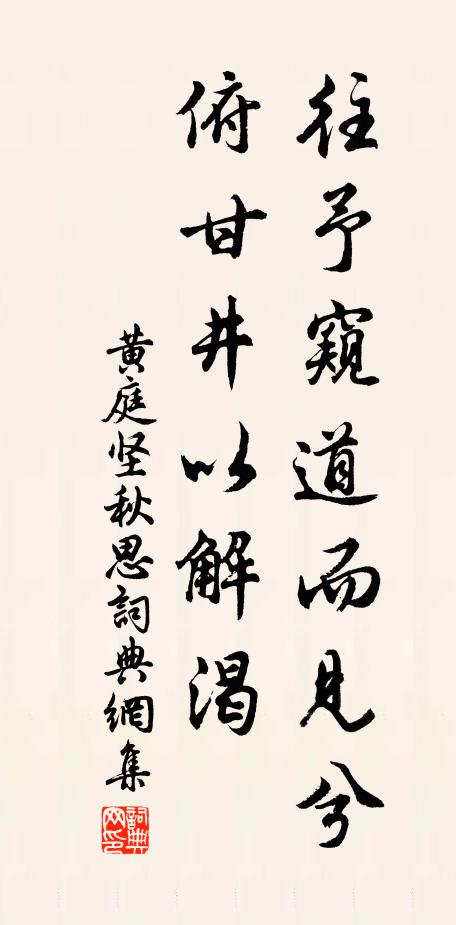 往予窺道而見兮
俯甘井以解渴
黄庭坚秋思詞典網集
詞典
网印